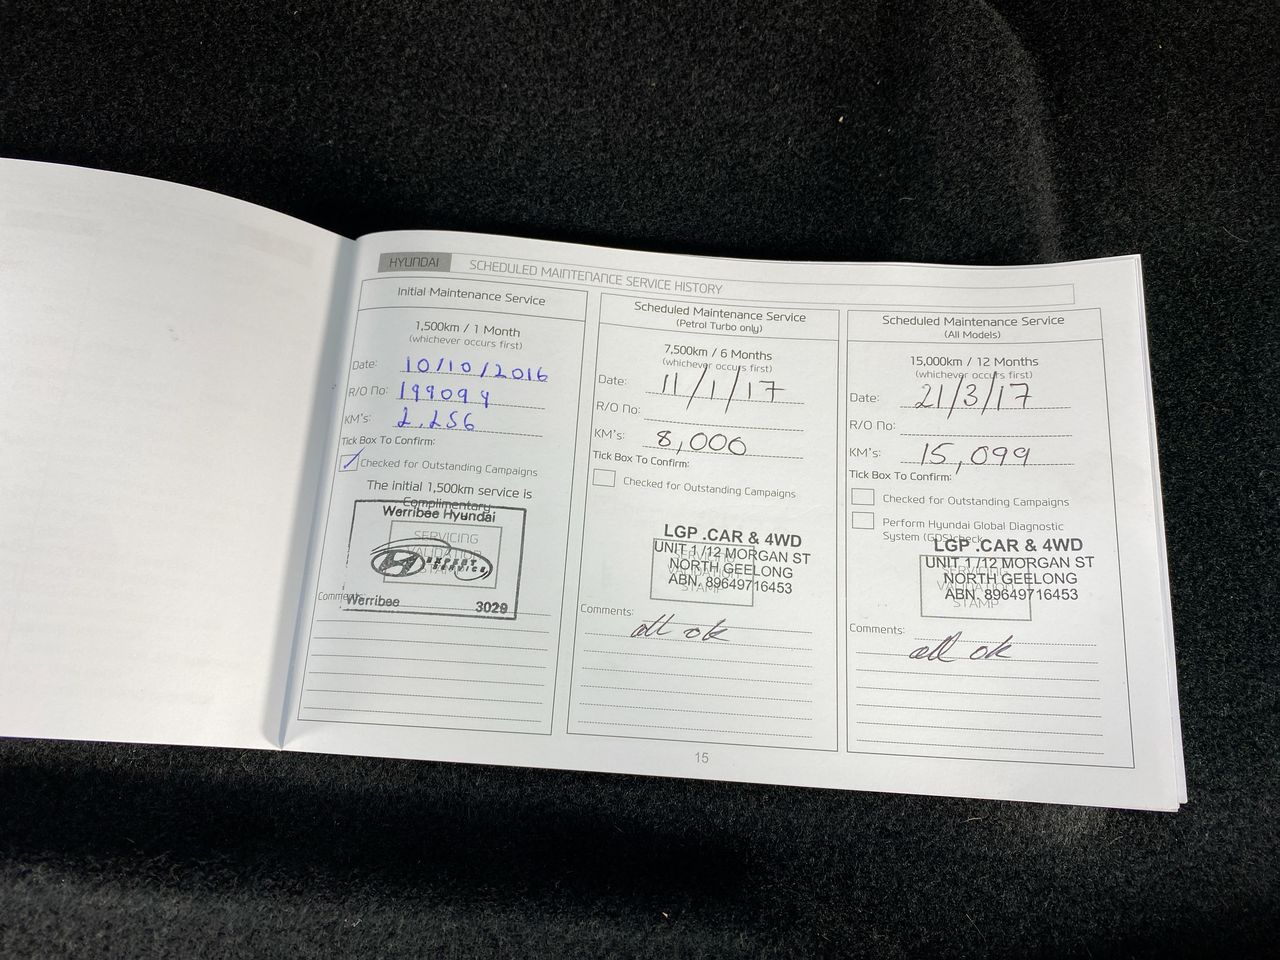 HYUNDAI SCHEDULED MAINTENANCE SERVICE HISTORY
Initial Maintenance Service
1,500km / 1 Month
(whichever occurs first)
Date: 10/10/2016
R/O No: 199094
KM's: 2,256
Tick Box To Confirm:
Checked for Outstanding Campaigns
The initial 1,500km service is
Complimentary
Werribee Hyundai
SERVICING
VALIDATION
STAMP
EXPERT
SERVICE
Werribee 3029
Comments:
Scheduled Maintenance Service
(Petrol Turbo only)
7,500km / 6 Months
(whichever occurs first)
Date: 11/1/17
R/O No:
KM's: 8,006
Tick Box To Confirm:
Checked for Outstanding Campaigns
LGP .CAR & 4WD
UNIT 1 /12 MORGAN ST
NORTH GEELONG
ABN. 89649716453
STAMP
Comments:
all ok
Scheduled Maintenance Service
(All Models)
15,000km / 12 Months
(whichever occurs first)
Date: 21/3/17
R/O No:
KM's: 15,099
Tick Box To Confirm:
Checked for Outstanding Campaigns
Perform Hyundai Global Diagnostic
System (GDS) check
LGP .CAR & 4WD
UNIT 1 /12 MORGAN ST
NORTH GEELONG
ABN. 89649716453
STAMP
Comments:
all ok
15